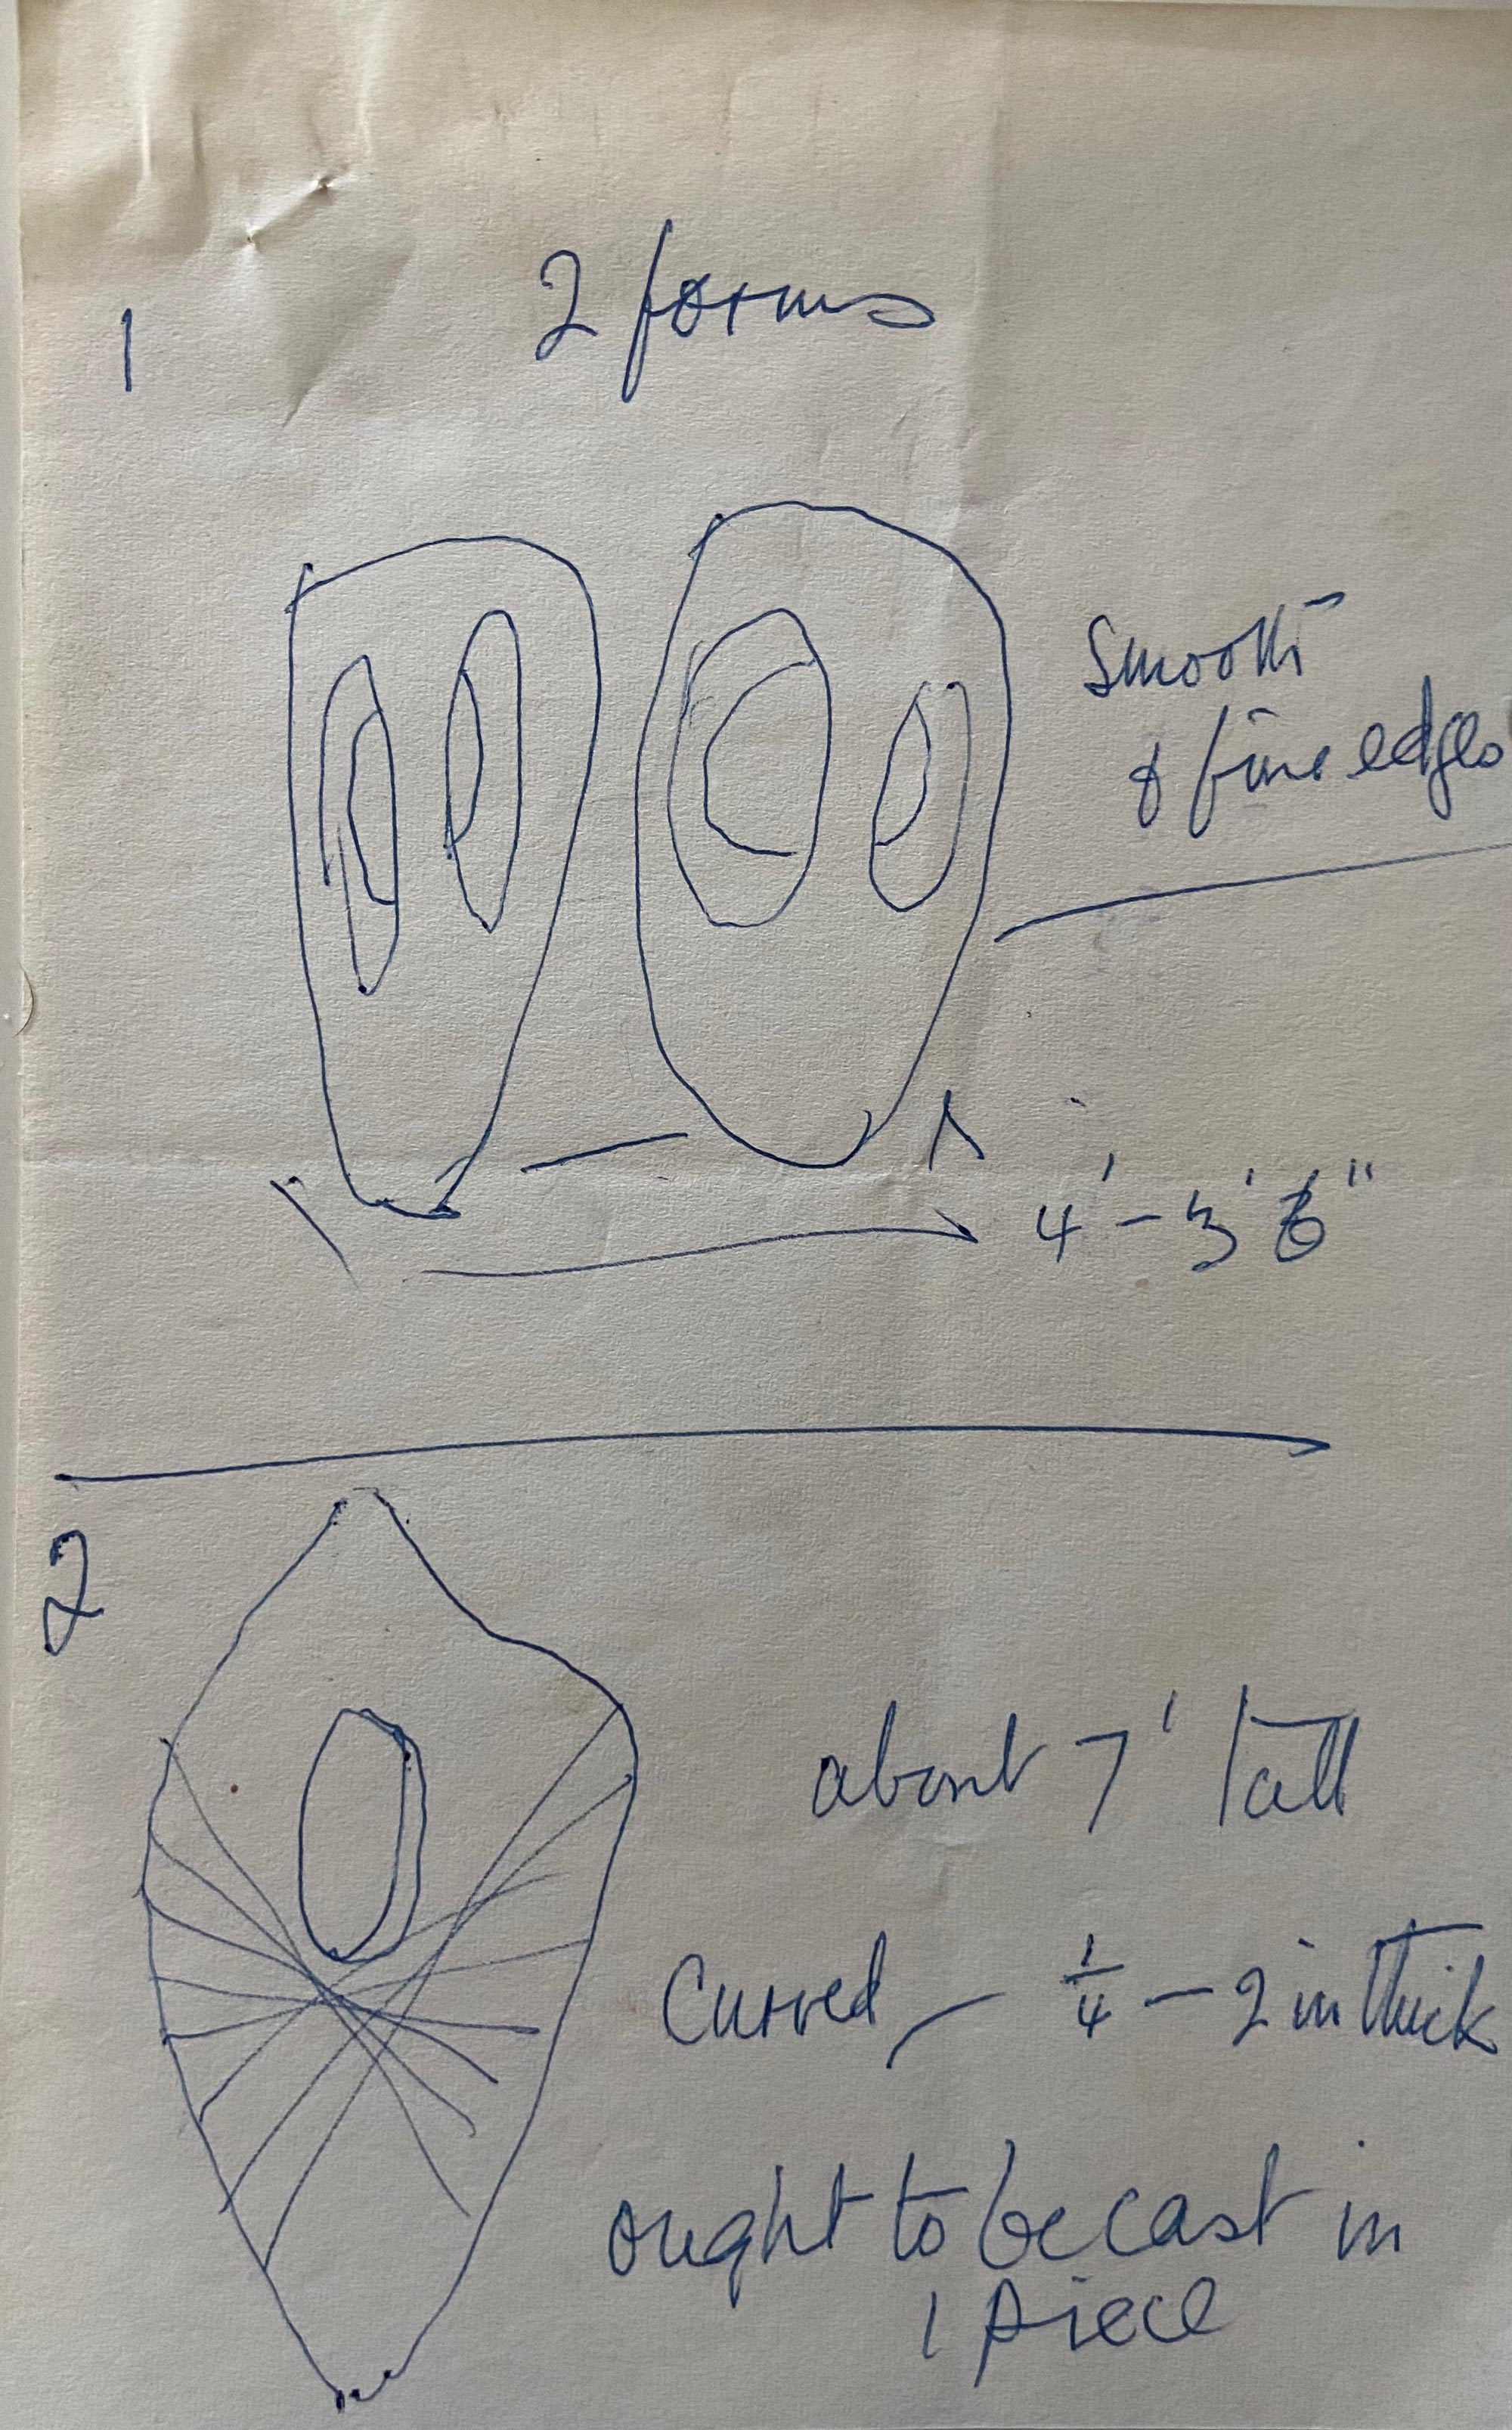 1
2 forms
Smooth
& fine edges
4' - 3' 6"
2
about 7' tall
Curved - 1/4 - 2 in thick
ought to be cast in
1 piece